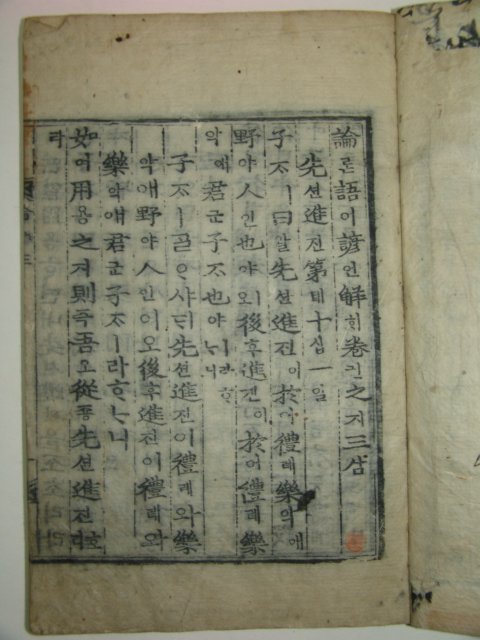 論론語어諺언解ᄒᆡ卷권之지三삼
先션進진第뎨十십一일
子ᄌᆞㅣ曰왈先션進진이於어禮례樂악애
野야人인也야ㅣ오後후進진이於어禮례樂
악애君군子ᄌᆞ也야ㅣ라ᄒᆞᄂᆞ니
子ᄌᆞㅣᄀᆞᆯᄋᆞ샤ᄃᆡ先션進진이禮례와樂
악애野야人인이오後후進진이禮례와
樂악애君군子ᄌᆞㅣ라ᄒᆞᄂᆞ니
如여用용之지則즉吾오從죵先션進진호리
라